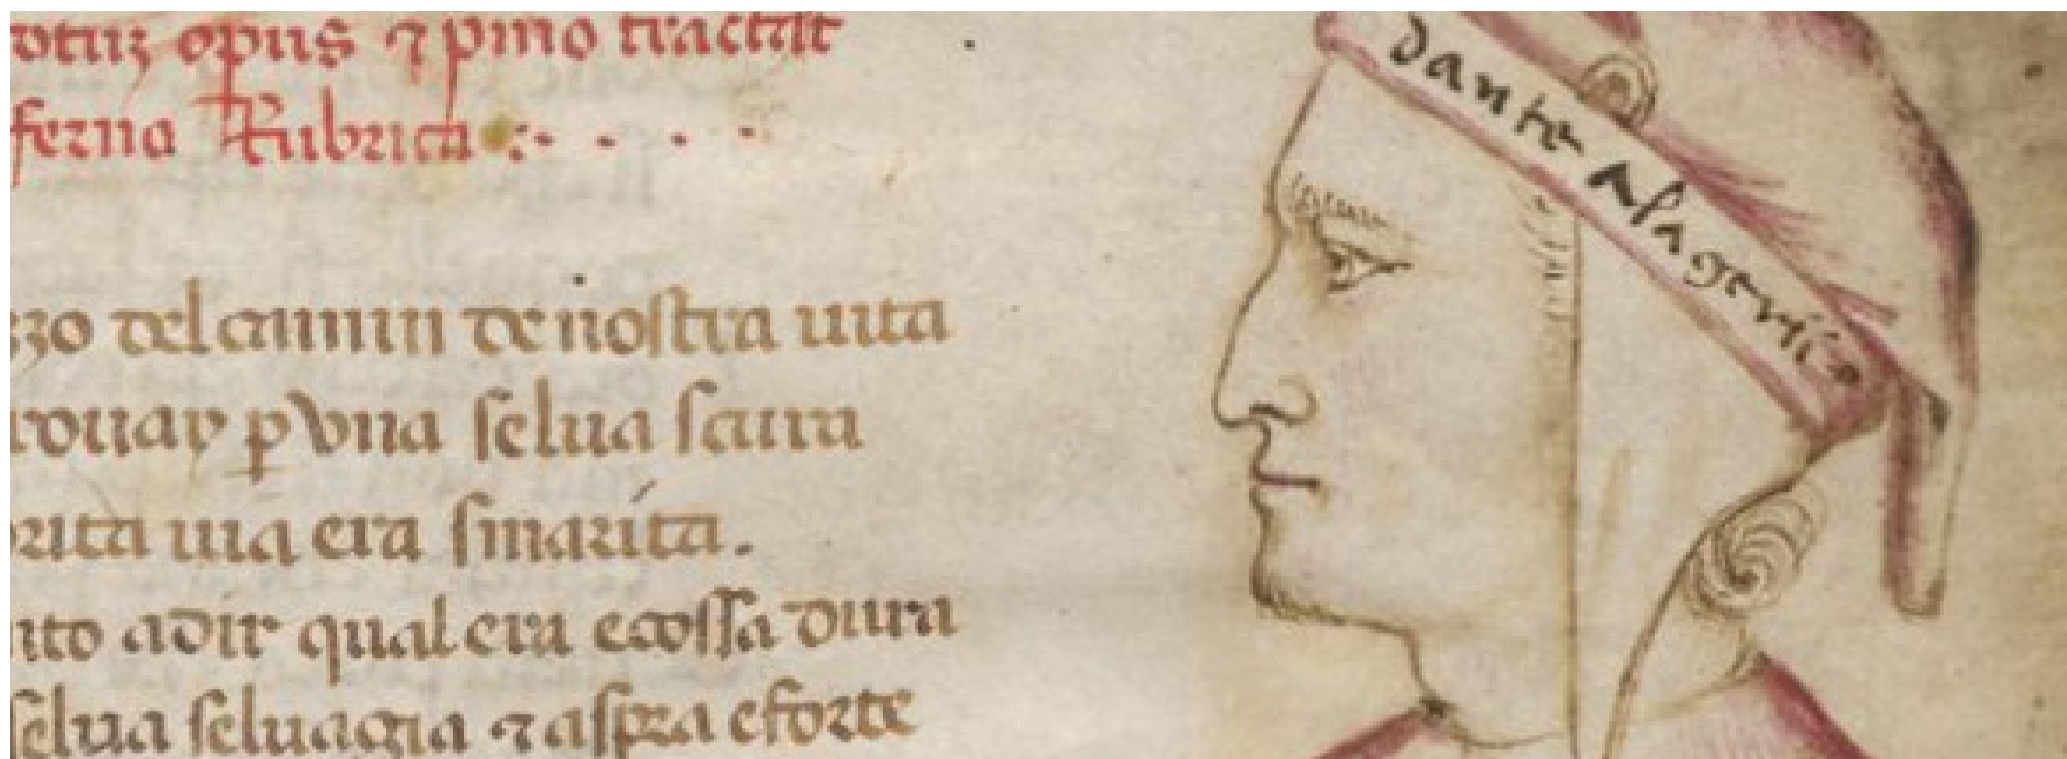 opus ⁊ pmo tractat
ferno Rubrica
zzo del camin de nostra uita
rouay p vna selua scura
rita uia era smarita.
nto adir qual era ecossa dura
selua seluagia ⁊ aspra eforte
dante alageriis